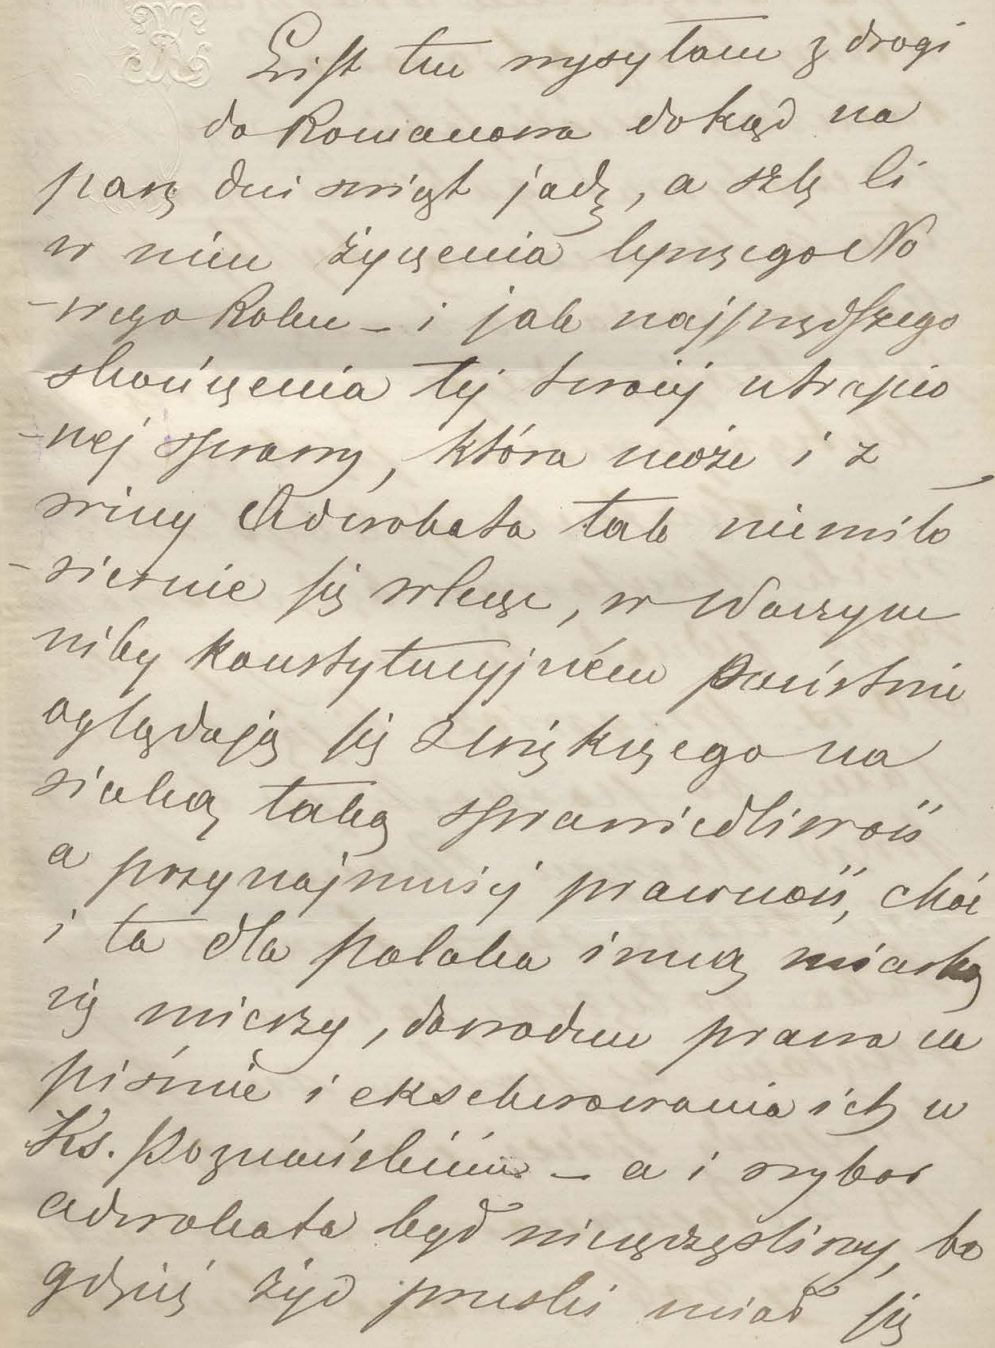 List ten wysyłam z drogi
do Romanowa dokąd na
parę dni świąt jadę, a szlę Ci
w nim życzenia lepszego No
-wego Roku – i jak najprędszego
skończenia tej twoiej utrapio
-nej sprawy, która może i z
winy Adwokata tak niemiło
-siernie się wlecze, w Waszym
niby konstytucyjném Państwie
oglądają się z większego na
siaką taką sprawiedliwość
a przynajmniej prawność, choć
i ta dla polaka inną miarką
się mierzy, dowodem prawa na
piśmie i eksekwowania ich w
Ks. Poznańskiém – a i wybor
adwokata był nieszczęśliwy, bo
gdzież żyd pruski miał się